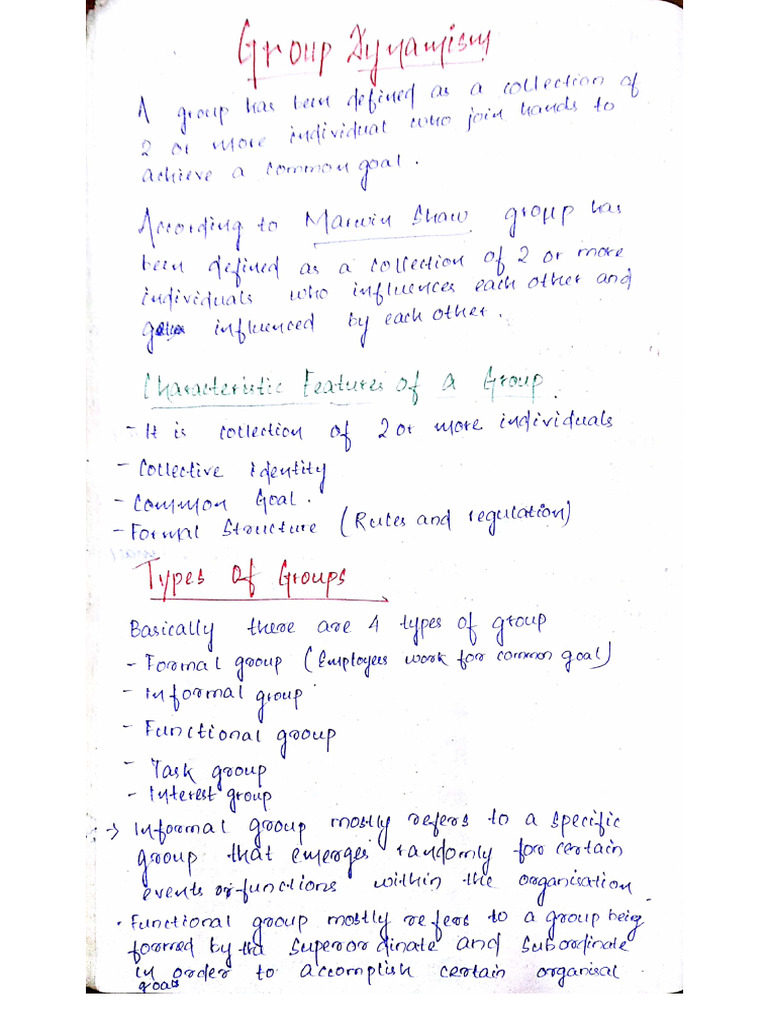 Group Dynamism
A group has been defined as a collection of
2 or more individual who join hands to
achieve a common goal.
According to Marwin Shaw group has
been defined as a collection of 2 or more
individuals who influences each other and
influenced by each other.
Characteristic Features of a Group
- It is collection of 2 or more individuals
- Collective identity
- Common Goal.
- Formal Structure (Rules and regulation)
Types of Groups
Basically there are 4 types of group
- Formal group (Employees work for common goal)
- Informal group
- Functional group
- Task group
- Interest group
→ Informal group mostly refers to a specific
group that emerges randomly for certain
events or functions within the organisation
· Functional group mostly refers to a group being
formed by the Superordinate and Subordinate
in order to accomplish certain organisal
goals